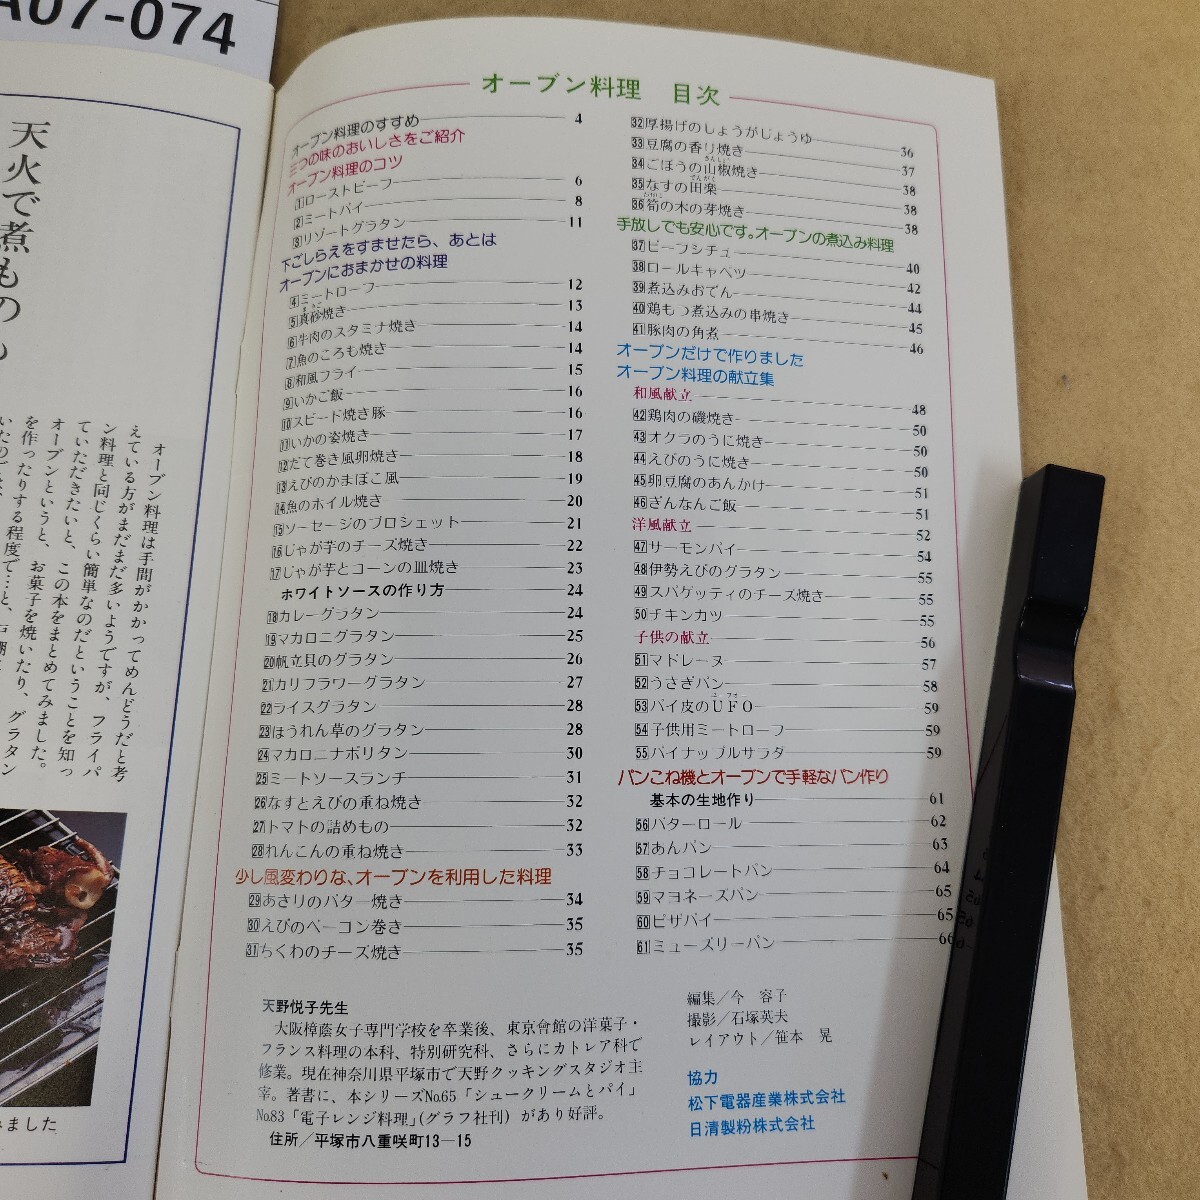 A07-074
天火で煮もの
オーブン料理は手間がかかってめんどうだと考
えている方がまだまだ多いようですが、フライパ
ン料理と同じくらい簡単なのだということを知っ
ていただきたいと、この本をまとめてみました。
オーブンというと、お菓子を焼いたり、グラタン
を作ったりする程度で…と、
みました
オーブン料理 目次
オーブン料理のすすめ 4
三つの味のおいしさをご紹介
オーブン料理のコツ
1 ローストビーフ 6
2 ミートパイ 8
3 リゾートグラタン 11
下ごしらえをすませたら、あとは
オーブンにおまかせの料理
4 ミートローフ 12
5 真砂焼き 13
6 牛肉のスタミナ焼き 14
7 魚のころも焼き 14
8 和風フライ 15
9 いかご飯 16
10 スピード焼き豚 16
11 いかの姿焼き 17
12 だて巻き風卵焼き 18
13 えびのかまぼこ風 19
14 魚のホイル焼き 20
15 ソーセージのブロシェット 21
16 じゃが芋のチーズ焼き 22
17 じゃが芋とコーンの皿焼き 23
ホワイトソースの作り方 24
18 カレーグラタン 24
19 マカロニグラタン 25
20 帆立貝のグラタン 26
21 カリフラワーグラタン 27
22 ライスグラタン 28
23 ほうれん草のグラタン 28
24 マカロニナポリタン 30
25 ミートソースランチ 31
26 なすとえびの重ね焼き 32
27 トマトの詰めもの 32
28 れんこんの重ね焼き 33
少し風変わりな、オーブンを利用した料理
29 あさりのバター焼き 34
30 えびのベーコン巻き 35
31 ちくわのチーズ焼き 35
32 厚揚げのしょうがじょうゆ 36
33 豆腐の香り焼き 37
34 ごぼうの山椒焼き 38
35 なすの田楽 38
36 筍の木の芽焼き 38
手放しでも安心です。オーブンの煮込み料理
37 ビーフシチュー 40
38 ロールキャベツ 42
39 煮込みおでん 44
40 鶏もつ煮込みの串焼き 45
41 豚肉の角煮 46
オーブンだけで作りました
オーブン料理の献立集
和風献立 48
42 鶏肉の磯焼き 50
43 オクラのうに焼き 50
44 えびのうに焼き 50
45 卵豆腐のあんかけ 51
46 ぎんなんご飯 51
洋風献立 52
47 サーモンパイ 54
48 伊勢えびのグラタン 55
49 スパゲッティのチーズ焼き 55
50 チキンカツ 55
子供の献立 56
51 マドレーヌ 57
52 うさぎパン 58
53 パイ皮のUFO 59
54 子供用ミートローフ 59
55 パイナップルサラダ 59
パンこね機とオーブンで手軽なパン作り
基本の生地作り 61
56 バターロール 62
57 あんパン 63
58 チョコレートパン 64
59 マヨネーズパン 65
60 ピザパイ 65
61 ミューズリーパン 66
天野悦子先生
大阪樟蔭女子専門学校を卒業後、東京會館の洋菓子・
フランス料理の本科、特別研究科、さらにカトレア科で
修業。現在神奈川県平塚市で天野クッキングスタジオ主
宰。著書に、本シリーズNo.65「シュークリームとパイ」
No.83「電子レンジ料理」(グラフ社刊)があり好評。
住所／平塚市八重咲町13―15
編集／今 容子
撮影／石塚英夫
レイアウト／笹本 晃
協力
松下電器産業株式会社
日清製粉株式会社